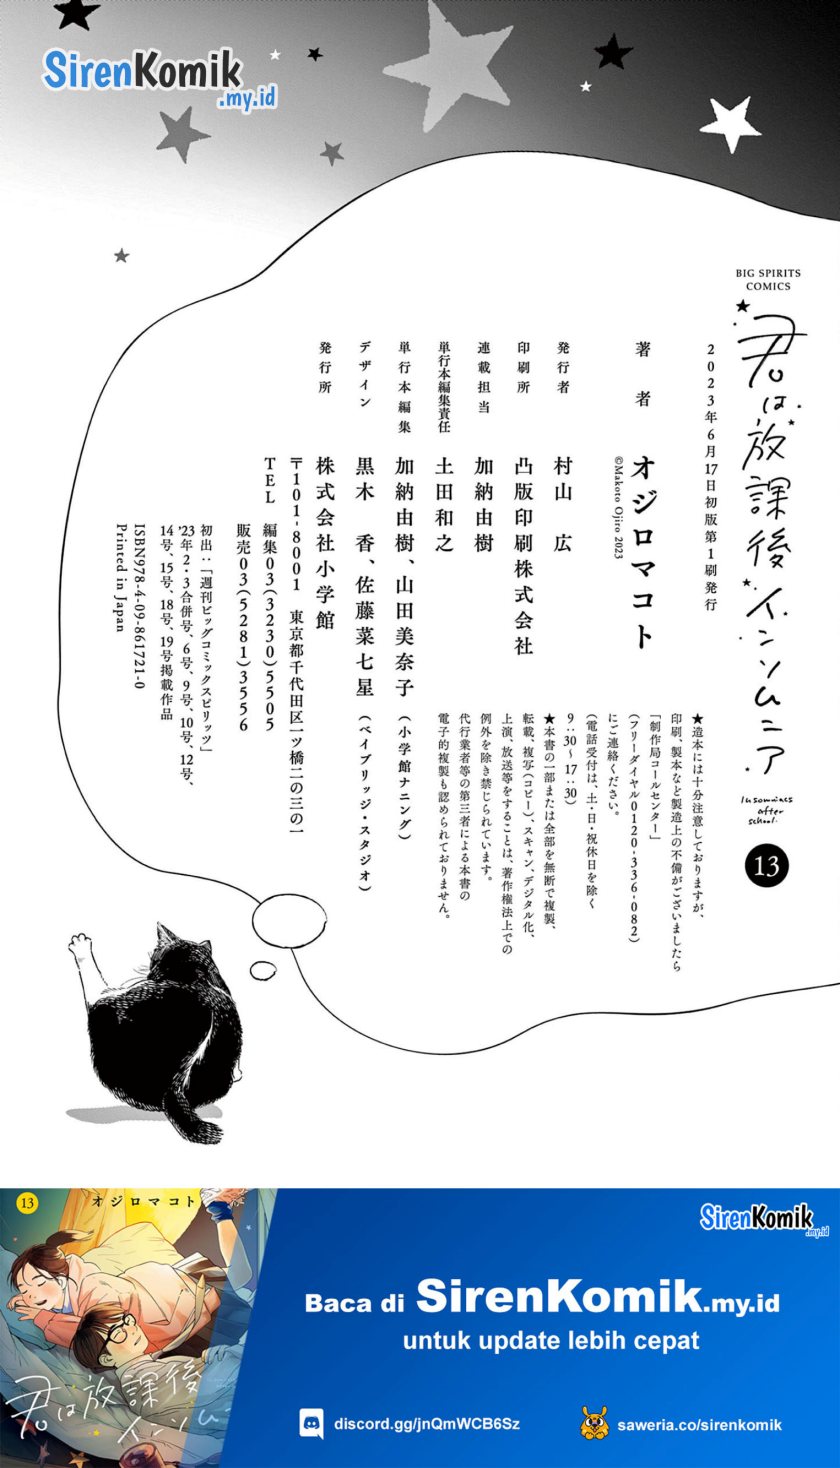 SirenKomik
.my.id
BIG SPIRITS
COMICS
君は放課後インソムニア
Insomniacs
after
school.
13
2023年6月17日初版第1刷発行
著者 オジロマコト
©Makoto Ojiro 2023
発行者 村山 広
印刷所 凸版印刷株式会社
連載担当 加納由樹
単行本編集責任 土田和之
単行本編集 加納由樹、山田美奈子(小学館ナニング)
デザイン 黒木 香、佐藤菜七星(ベイブリッジ・スタジオ)
発行所 株式会社小学館
〒101-8001 東京都千代田区一ツ橋二の三の一
TEL 編集03(3230)5505
販売03(5281)3556
初出:「週刊ビッグコミックスピリッツ」
'23年2・3合併号、6号、9号、10号、12号、
14号、15号、18号、19号掲載作品
ISBN978-4-09-861721-0
Printed in Japan
★造本には十分注意しておりますが、
印刷、製本など製造上の不備がございましたら
「制作局コールセンター」
(フリーダイヤル0120-336-082)
にご連絡ください。
(電話受付は、土・日・祝休日を除く
9:30~17:30)
★本書の一部または全部を無断で複製、
転載、複写(コピー)、スキャン、デジタル化、
上演、放送等をすることは、著作権法上での
例外を除き禁じられています。
代行業者等の第三者による本書の
電子的複製も認められておりません。
13
オジロマコト
君は放課後
インソム
SirenKomik
.my.id
Baca di SirenKomik.my.id
untuk update lebih cepat
discord.gg/jnQmWCB6Sz
saweria.co/sirenkomik